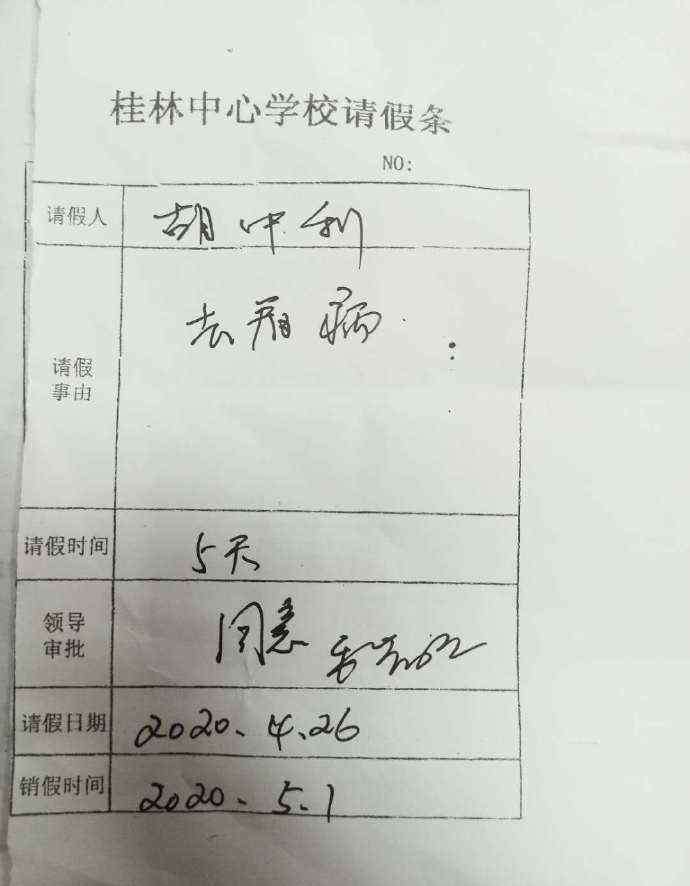 桂林中心学校请假条
NO:
请假人 胡中利
请假事由 去看病.
请假时间 5天
领导审批 同意
请假日期 2020.4.26
销假时间 2020.5.1